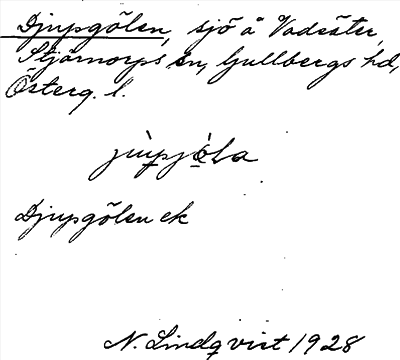 Djupgölen, sjö å Vadsäter,
Stjärnorps sn, Gullbergs hd,
Österg. l.
jùpjö̀la
Djupgölen ek
N. Lindqvist 1928